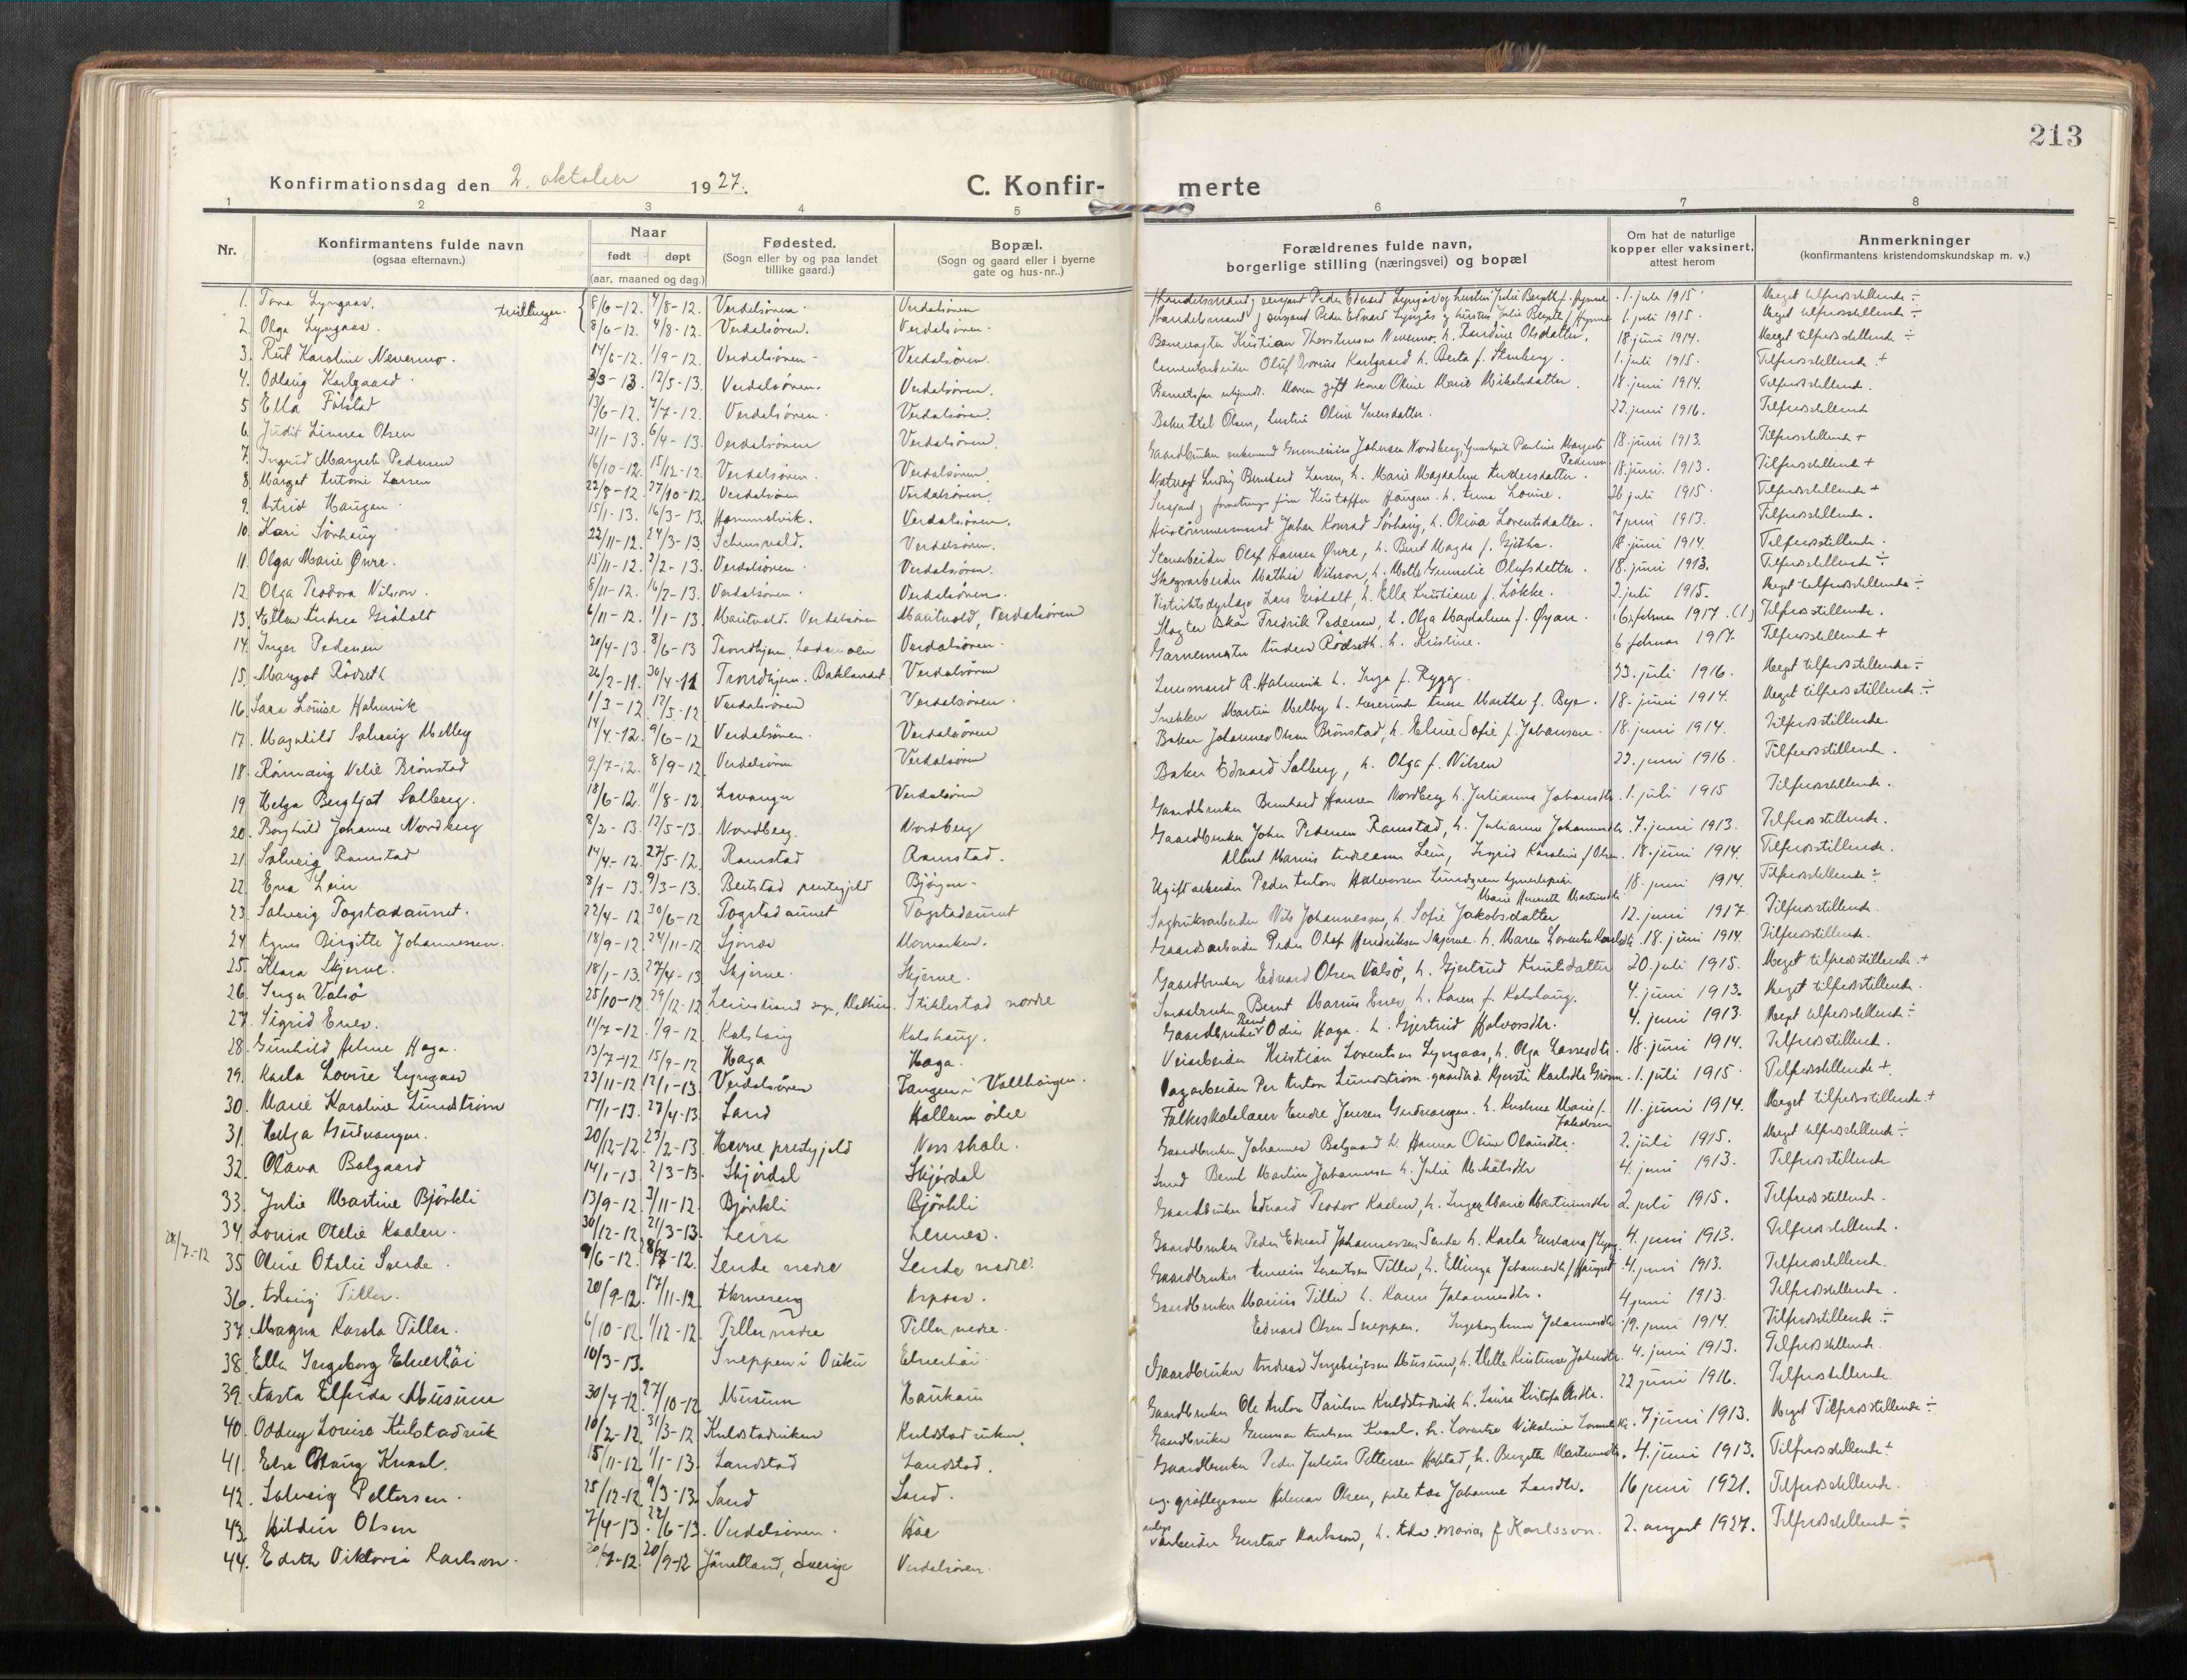 213
Konfirmationsdag den 2. oktober 1927.
C. Konfir-merte
1 2 3 4 5 6 7 8
Nr. Konfirmantens fulde navn (ogsaa efternavn.) Naar født døpt (aar, maaned og dag.) Fødested. (Sogn eller by og paa landet tillike gaard.) Bopæl. (Sogn og gaard eller i byerne gate og hus-nr..) Forældrenes fulde navn, borgerlige stilling (næringsvei) og bopæl Om hat de naturlige kopper eller vaksinert, attest herom Anmerkninger (konfirmantens kristendomskundskap m. v.)
1. Tora Lyngaas. trillinger. 8/6-12. 4/8-12. Verdalsøren. Verdalsøren 1. juli 1915 Meget tilfredsstillende ÷
2. Olga Lyngaas. 8/6-12. 4/8-12. Verdalsøren. Verdalsøren. 1. juli 1915. Meget tilfredsstillende ÷
3. Rut Karoline Nevermo. 14/6-12. 1/9-12. Verdalsøren Verdalsøren. 18. juni 1914. Meget tilfredsstillende ÷
4. Odlaug Karlgaard. 3/3-13. 12/5-13. Verdalsøren. Verdalsøren. Cementarbeider Oluf Karlgaard h. Berta f. Stenberg. 1. juli 1915. Tilfredsstillende +
5 Ella Fikstad 13/6-12. 4/7-12. Verdalsøren. Verdalsøren. Moren gift kone Oline Marie Mikalsdatter. 18. juni 1914. Tilfredsstillende.
6. Judit Linnea Olsen 31/1-13. 6/4-13. Verdalsøren Verdalsøren. Baker Axel Olsen, hustru Oline Jensdatter. 22. juni 1916. Tilfredsstillende
7. Ingrid Margrete Pedersen 16/10-12. 15/12-12. Verdalsøren. Verdalsøren. Pauline Margrete Pedersen 18. juni 1913. Tilfredsstillende +
8. Margot Antonie Larsen 22/8-12. 27/10-12. Verdalsøren Verdalsøren. Ludvig Bernhard Larsen, h. Marie Magdalene Andersdatter. 18. juni. 1913. Tilfredsstillende +
9. Astrid Haugan. 15/1-13. 16/3-13. Hommelvik. Verdalsøren. Kristoffer Haugan. h. Anna Lovise. 26 juli 1915. Tilfredsstillende +
10. Kari Sørhaug 22/11-12. 24/3-13. Verdalsøren. Johan Konrad Sørhaug, h. Oliva Lorentsdatter. 7 juni 1913. Tilfredsstillende.
11. Olga Marie Øvre. 15/11-12. 2/2-13. Verdalsøren. Verdalsøren. Stenarbeider Olaf Hansen Øvre, h. Berit Magda f. Gjethe. 18. juni 1914. Tilfredsstillende.
12. Olga Teodora Nilsson. 8/11-12. 16/2-13. Verdalsøren. Verdalsøren. Skogsarbeider Mathis Nilsson, h. Mette Gunelie Olufsdatter. 18. juni 1913. Tilfredsstillende ÷
13. Ellen Andrea Gidholt 6/11-12. 1/1-13. Maritvold. Verdalsøren Maritvold, Verdalsøren Lars Gidholt, h. Ella Kristiane f. Løkke. 2. juli 1915. Meget tilfredsstillende ÷
14. Inger Pedersen 20/4-13 8/6-13 Trondhjem, Lademoen Verdalsøren. Slagter Oskar Fredrik Pedersen, h. Olga Magdalena f. Ørjan. 6. februar 1917. (1) Tilfredsstillende.
15. Margot Rödseth 26/2-11. 30/4-11 Trondhjem. Baklandet Verdalsøren Garnermester Anders Rödseth. h. Kristine. 6 februar 1917. Tilfredsstillende +
16. Sara Louise Holmvik 1/3-12 12/5-12 Verdalsøren Verdalsøren. Lensmand R. Holmvik h. Inga f. Rygg. 23. juli 1916. Meget tilfredsstillende ÷
17. Magnhild Solveig Melby 14/4-12. 9/6-12 Verdalsøren. Verdalsøren Snekker Martin Melby h. Anna Martha f. Beje. 18. juni 1914. Meget tilfredsstillende ÷
18. Rönnaug Nelie Brönstad 9/7-12. 8/9-12. Verdalsøren Verdalsøren Baker Johannes Olsen Brönstad, h. Eline Sofie f. Johansen. 18. juni 1914. Tilfredsstillende.
19 Helga Bergljot Salberg. 18/6-12. 11/8-12. Levanger Verdalsøren Baker Edvard Salberg, h. Olga f. Nilsen 22. juni 1916. Tilfredsstillende.
20. Borghild Johanne Nordberg 8/2-13. 12/5-13. Nordberg. Nordberg Gaardbruker Bernhard Hansen Nordberg h. Julianna Johansdtr. 1. juli 1915 Tilfredsstillende.
21. Solveig Ramstad 14/4-12. 27/5-12. Ramstad Ramstad. Gaardbruker John Pedersen Ramstad, h. Julianna Johannesdtr. 7. juni 1913. Tilfredsstillende.
22. Erna Lein 8/1-13. 9/3-13. Beitstad prestegjeld Bjørgen. Albert Marius Andreassen Lein, Ingrid Karoline f. Olsen. 18. juni 1914. Tilfredsstillende.
23. Solveig Togstadaunet. 22/4-12 30/6-12 Togstadaunet Togstadaunet Ugift arbeider Peder Anton Halvorsen Marie Martinsdtr 18. juni 1914. Tilfredsstillende ÷
24. Agnes Birgitte Johannessen. 18/9-12. 24/11-12 Momarken. Sagbruksarbeider Nils Johannessen, h. Sofie Jakobsdatter 12. juni 1917. Tilfredsstillende.
25. Klara Skjerve. 18/1-13. 27/4-13 Skjerve. Skjerve. Gaardsarbeider Peder Olaf Hendriksen Skjerve. h. Maren 18. juni 1914. Tilfredsstillende.
26. Inga Valsø 25/10-12. 29/12-12. Leinstrand sogn, Melhus. Stiklestad nordre Gaardbruker Edvard Olsen Valsø, h. Gjertrud Knutsdatter 20. juli 1915. Meget tilfredsstillende +
27. Sigrid Enes. 11/7-12. 1/9-12. Kolshaug Kolshaug. Smaabruker Bernt Marius Enes, h. Karen f. Kolshaug. 4. juni 1913. Meget tilfredsstillende.
28. Gunhild Helene Haga. 13/7-12. 15/9-12. Haga Haga. Gaardbruker Bernt Odin Haga. h. Gjertrud Halvorsdtr. 4. juni 1913. Meget tilfredsstillende ÷
29. Karla Lovise Lyngaas 23/11-12. 12/1-13. Verdalsøren Tangen i Vollhaugen. Veiarbeider Kristian Lorentsen Lyngaas, h. Olga Larsesdtr. 18. juni 1914. Tilfredsstillende.
30. Marie Karoline Lundström 17/1-13. 27/4-13. Sand Hallem østre Dagarbeider Per Anton Lundström 1. juli 1915. Tilfredsstillende +
31. Helga Gudvangen. 20/12-12. 23/2-13. Hevne prestegjeld Ness skole. Folkeskolelærer Endre Jensen Gudvangen. h. Kristine Marie f. Jakobsen 11. juni 1914. Meget tilfredsstillende +
32. Olava Balgaard 14/1-13. 2/3-13. Skjørdal Skjørdal Gaardbruker Johannes Balgaard h. Hanna Oline Olausdtr. 2. juli 1915. Meget tilfredsstillende ÷
33. Julie Martine Björkli 13/9-12. 3/11-12. Björkli Björkli Smed Bernt Martin Johannesen h. Julie Mikalsdtr 4. juni 1913. Tilfredsstillende
34. Louise Otelie Kaalen. 30/12-12. 21/3-13. Leira Lennes. Gaardbruker Edvard Teodor Kaalen, h. Inger Marie Martinusdtr 2. juli 1915. Tilfredsstillende.
28/7.-12
35 Oline Otelie Sende. 9/6-12. 28/7-12. Sende nedre Sende nedre. Gaardbruker Peder Edvard Johannessen Sende h. Karla Gustava f. Lyng 4. juni 1913. Tilfredsstillende.
36. Aslaug Tiller. 20/9-12. 17/11-12. Gaardbruker Lorentsen Tiller, h. Ellinga Johannesdtr. 4. juni 1913. Tilfredsstillende.
37. Magna Karola Tiller. 6/10-12. 1/12-12. Tiller nedre Tiller nedre. Gaardbruker Marius Tiller h. Karen Johannesdtr. 4 juni 1913. Tilfredsstillende.
38. Ella Ingeborg Elverhöi 10/3-13. Sneppen i Elverhöi. Edvard Olsen Sneppen. Ingeborg Anna Johannesdtr. 19. juni 1914. Tilfredsstillende ÷
39. Aasta Elfrida Musum 30/7-12. 27/10-12 Musum Haukaa Gaardbruker Andreas Ingebrigtsen Musum, h. Mette Kristense Johansdtr. 4. juni 1913. Tilfredsstillende.
40. Oddny Louise Kulstadvik 10/2-12. 31/3-12 Kulstadviken Kulstadviken. Gaardbruker Ole Anton Paulsen Kulstadvik h. Laura Kristofa Olsdtr. 22 juni 1916. Tilfredsstillende.
41. Else Olaug Kvaal. 15/11-12 1/1-13. Landstad Landstad. Gaardbruker Gunnar Knutsen Kvaal. h. Lorentse Nikoline 7 juni 1913. Meget Tilfredsstillende ÷
42. Solveig Pettersen. 25/12-12. 9/3-13. Sand Sand. Gaardbruker Peder Julius Pettersen h. Bergitte Martinusdtr. 4. juni 1913. Tilfredsstillende +
43. Hildur Olsen 2/4-13. 22/6-13. Verdalsøren. Hilmar Olsen, Johanne Larsdtr. 16 juni 1921. Tilfredsstillende.
44. Edith Viktoria Karlsson. 20/7-12. 20/9-12 Jämtland, Sverige Verdalsøren. arbeider Gustav Karlsson, h. Maria f Karlsson. 2. august 1927. Tilfredsstillende ÷